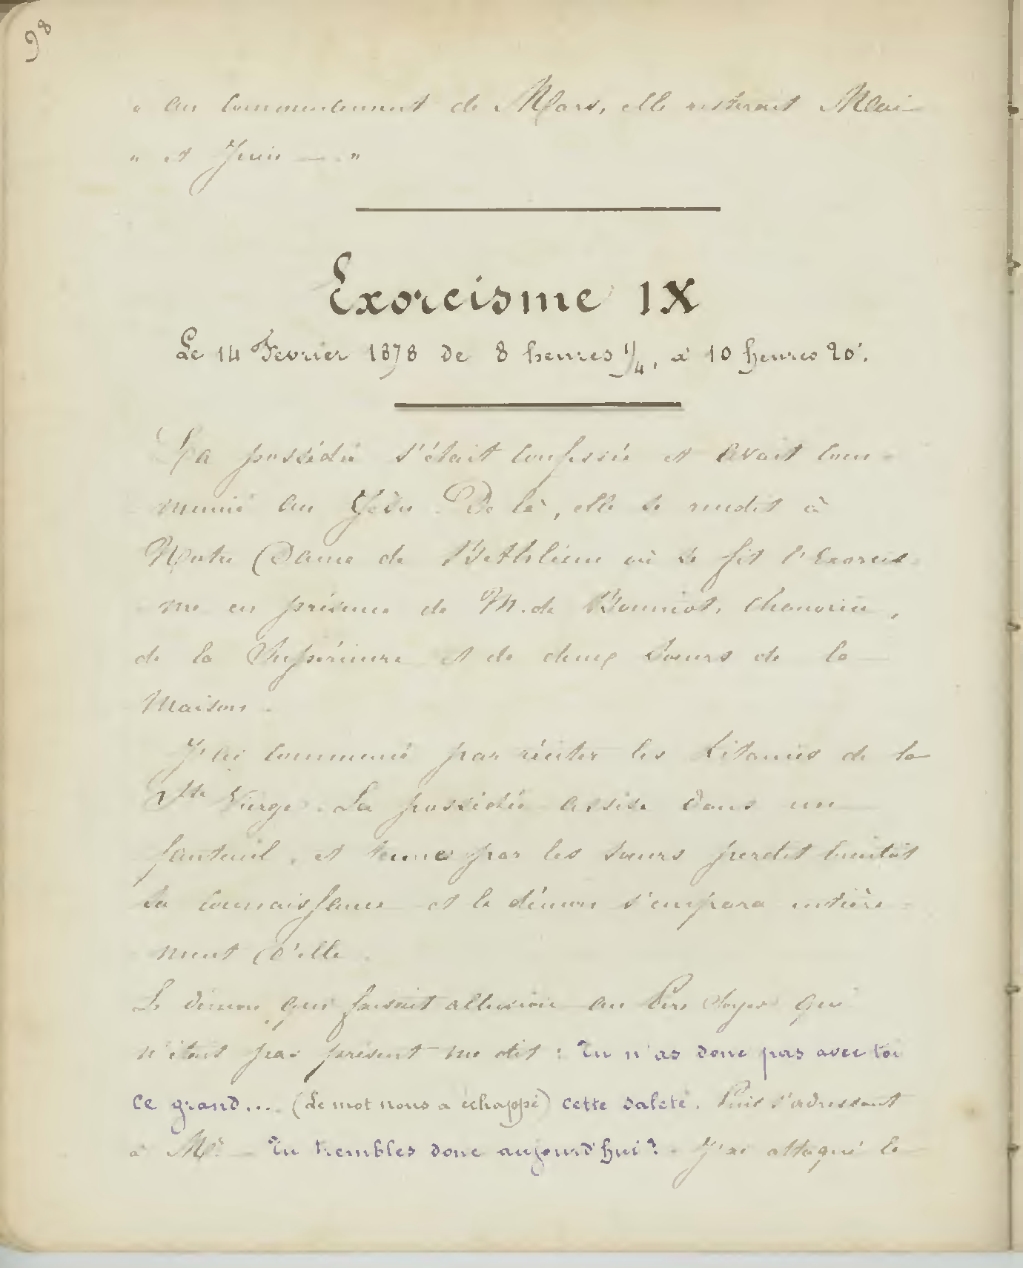 98
« au commencement de Mars, elle resterait Mai
« et Juin — . »
Exorcisme IX
Le 14 Fevrier 1878 de 8 heures 1/4, à 10 heures 20'.
La possédée s'était confessée et avait com-
munié au Gèsu. De là, elle se rendit à
Notre Dame de Bethléem où se fit l'Exorcis-
me en présence de M. de Bonniot, chanoine,
de la Supérieure et de deux Sœurs de la
Maison.
J'ai commencé par réciter les Litanies de la
Ste Vierge. La possédée assise dans un
fauteuil, et tenue par les sœurs perdit bientôt
la connaissance et le démon s'empara entière-
ment d'elle.
Le démon qui faisait allusion au Père qui
n'était pas présent me dit : Tu n'as donc pas avec toi
ce grand... (Le mot nous a échappé) cette saleté. Puis s'adressant
à Mr. — Tu trembles donc aujourd'hui ? - J'ai attaqué le